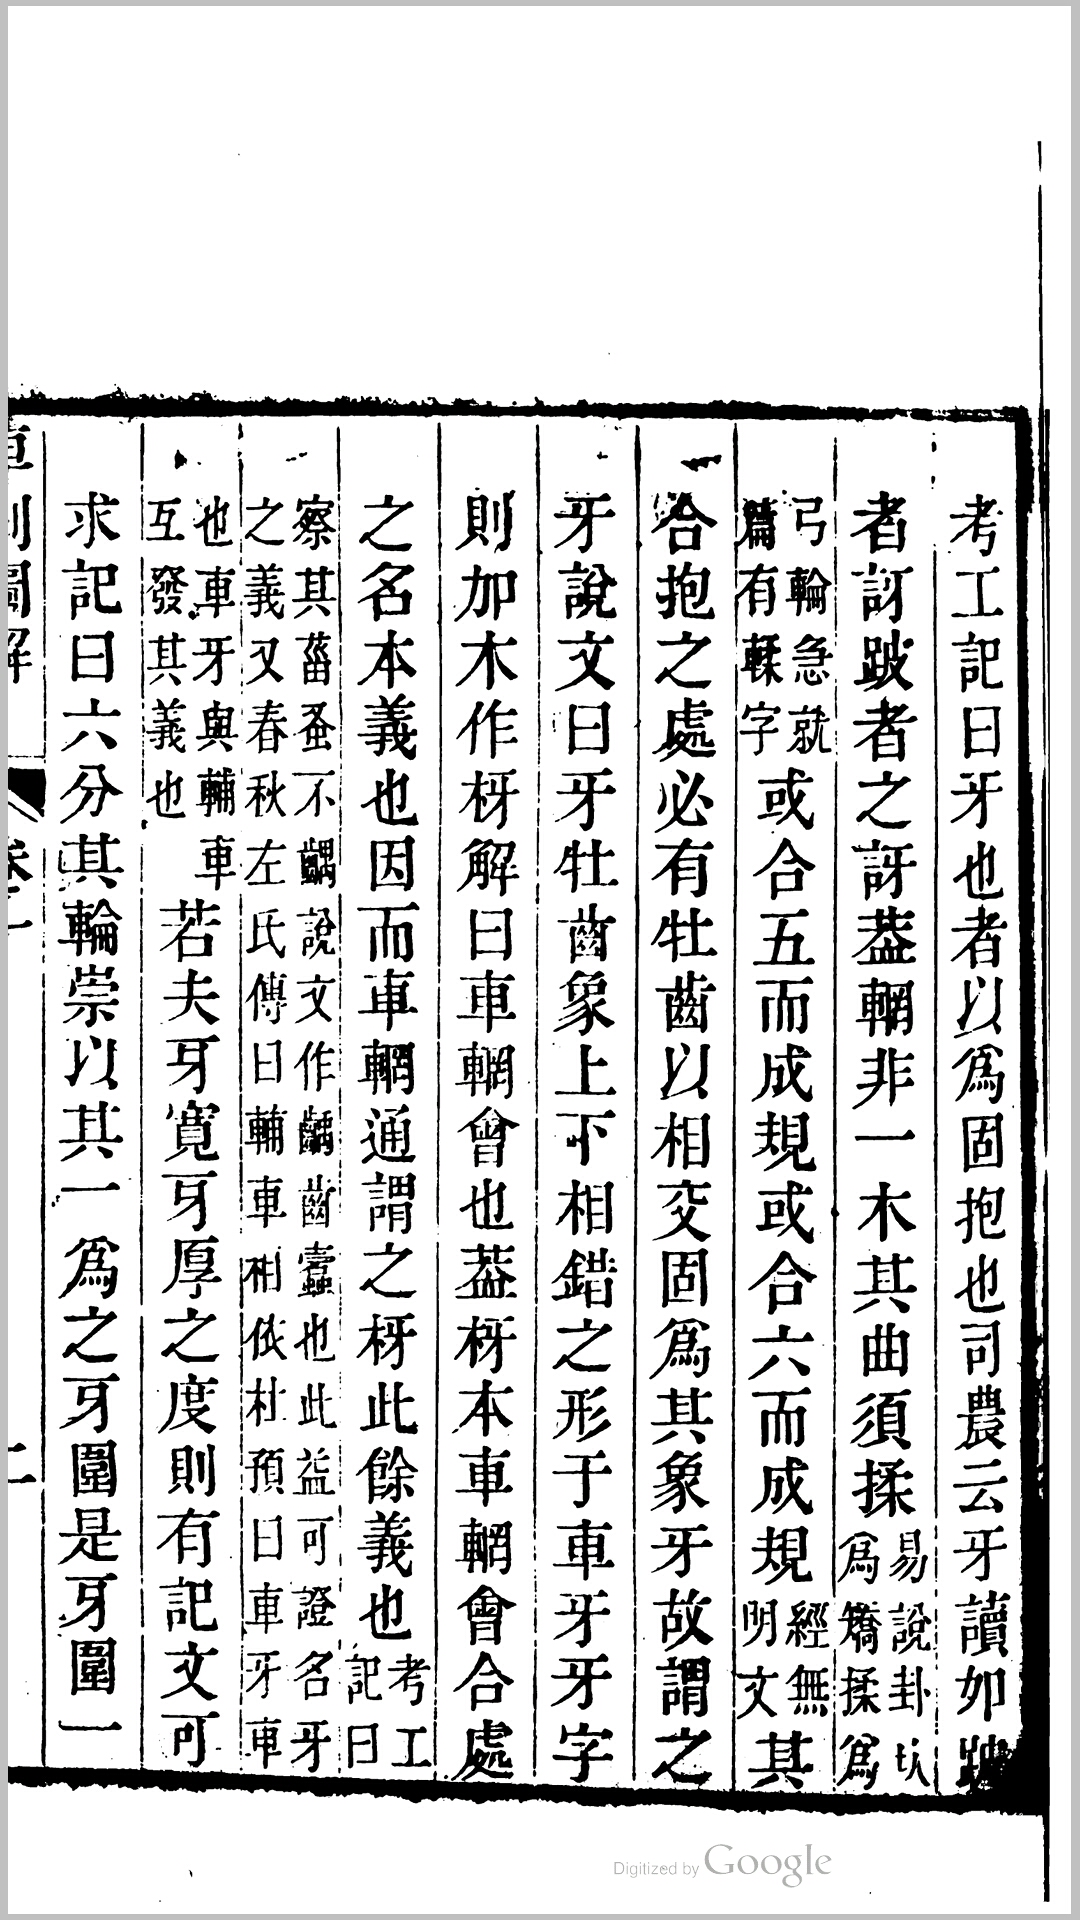 考工記曰牙也者以爲固抱也司農云牙讀如跛
者訝跛者之訝葢輞非一木其曲須揉易說卦坎爲矯揉爲
弓輪急就篇有輮字或合五而成規或合六而成規經無明文其
合抱之處必有牡齒以相交固爲其象牙故謂之
牙說文曰牙牡齒象上下相錯之形于車牙牙字
則加木作枒解曰車輞會也葢枒本車輞會合處
之名本義也因而車輞通謂之枒此餘義也考工記曰
察其菑蚤不齵說文作齵齒蠹也此益可證名牙之義又春秋左氏傳曰輔車相依杜預曰車牙車
也車牙與輔車互發其義也若夫牙寬牙厚之度則有記文可
求記曰六分其輪崇以其一爲之牙圍是牙圍一
車制圖解
卷一
二
Digitized by Google